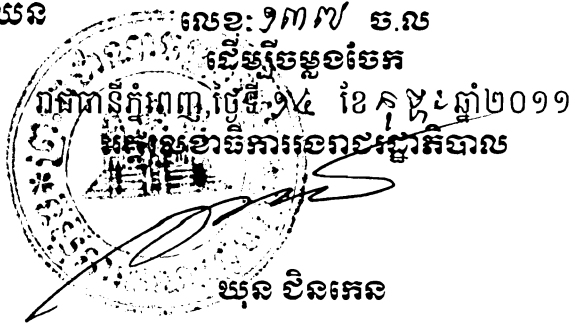 លេខ: ១៣៧ ច.ល
ដើម្បីចម្លងចែក
រាជធានីភ្នំពេញ, ថ្ងៃទី ១៤ ខែ កុម្ភៈ ឆ្នាំ២០១១
អគ្គលេខាធិការរងរាជរដ្ឋាភិបាល
ឃុន ជិនកេន